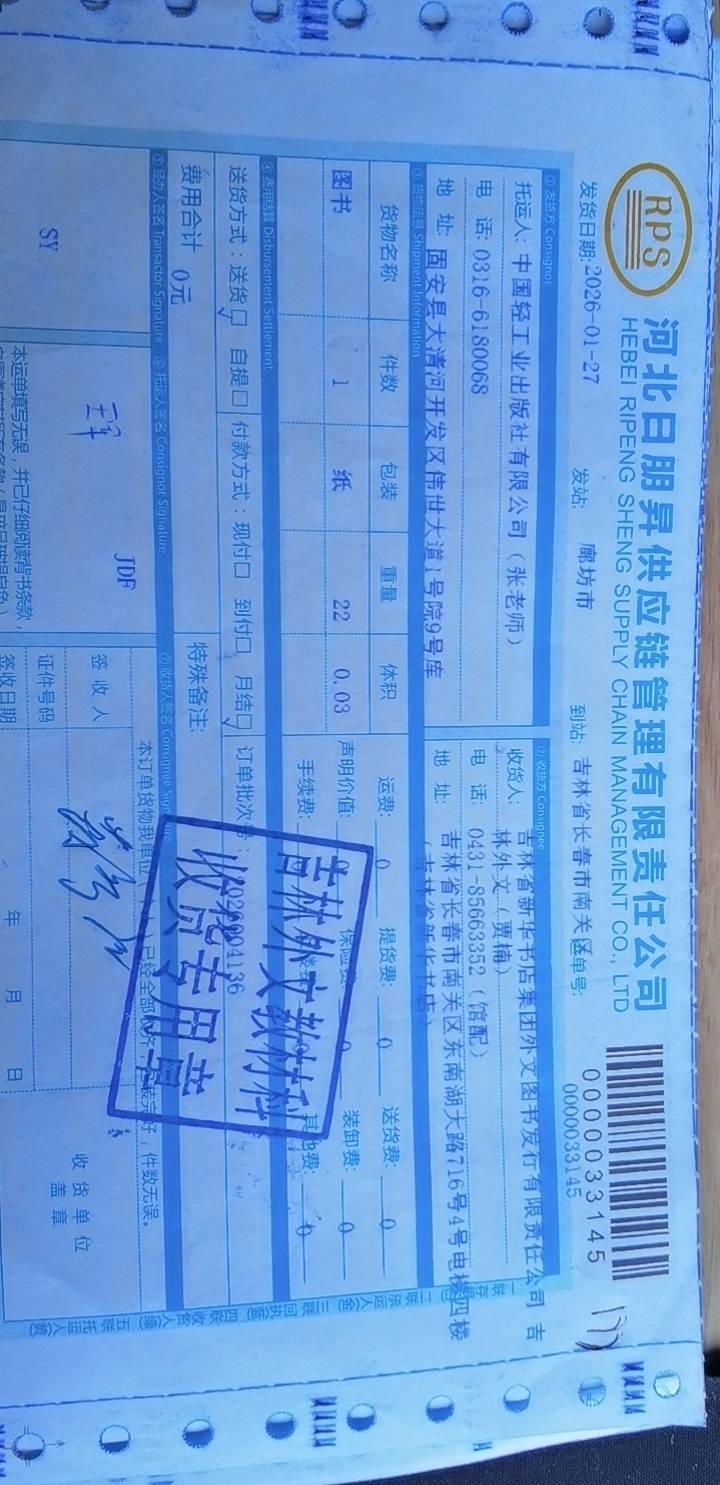 RPS
河北日朋昇供应链管理有限责任公司
HEBEI RIPENG SHENG SUPPLY CHAIN MANAGEMENT CO., LTD
0000033145
发货日期:2026-01-27 发站: 廊坊市 到站: 吉林省长春市南关区 运单号: 0000033145
① 发货方 Consignor ② 收货方 Consignee
托运人: 中国轻工业出版社有限公司（张老师）
电 话: 0316-6180068
地 址: 固安县大清河开发区伟世大道1号院9号库
收货人: 吉林省新华书店集团外文图书发行有限责任公司 吉林外文（贾楠）
电 话: 0431-85663352（馆配）
地 址: 吉林省长春市南关区东南湖大路716号4号电梯四楼（吉林省新华书店）
③ 货物信息 Shipment Information
货物名称 件数 包装 重量 体积
图书 1 纸 22 0.03
运费: 0 提货费: 0 送货费: 0
声明价值: 0 保险费: 0 装卸费: 0
手续费: 其他费: 0
④ 费用结算 Disbursement Settlement
送货方式: 送货☑ 自提□ 付款方式: 现付□ 到付□ 月结☑ 订单批次号:
费用合计 0元 特殊备注:
吉林外文教材科
收货专用章
⑤ 经办人签名 Transactor Signature ⑥ 托运人签名 Consignor Signature ⑦ 收货人签名 Consignee Signature
SY
JDF
本运单填写无误，并已仔细阅读背书条款，
本订单货物我单位 已经全部 完好，件数无误。
签 收 人
证件号码
签收日期 年 月 日
收货单位
盖 章